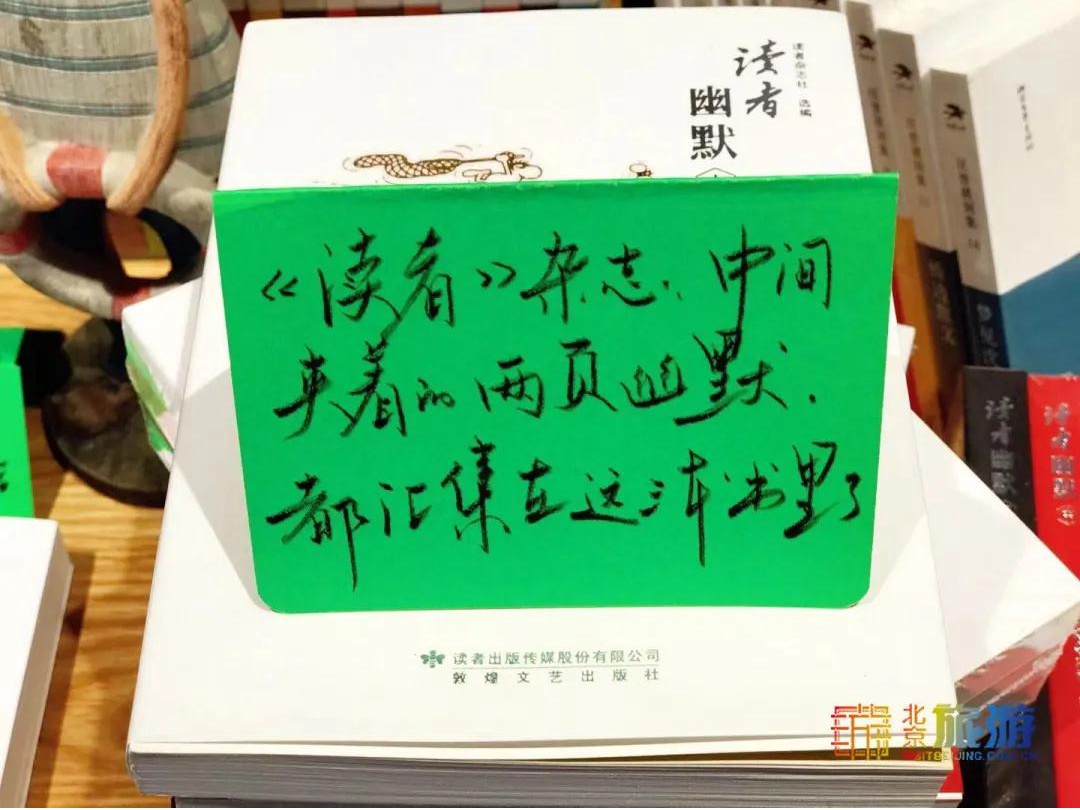 读者杂志社 选编
读者
幽默
《读者》杂志,中间
夹着的两页幽默.
都汇集在这三本书里了
读者出版传媒股份有限公司
敦煌文艺出版社
读者幽默
读者幽默
北京旅游
VISITBEIJING.COM.CN